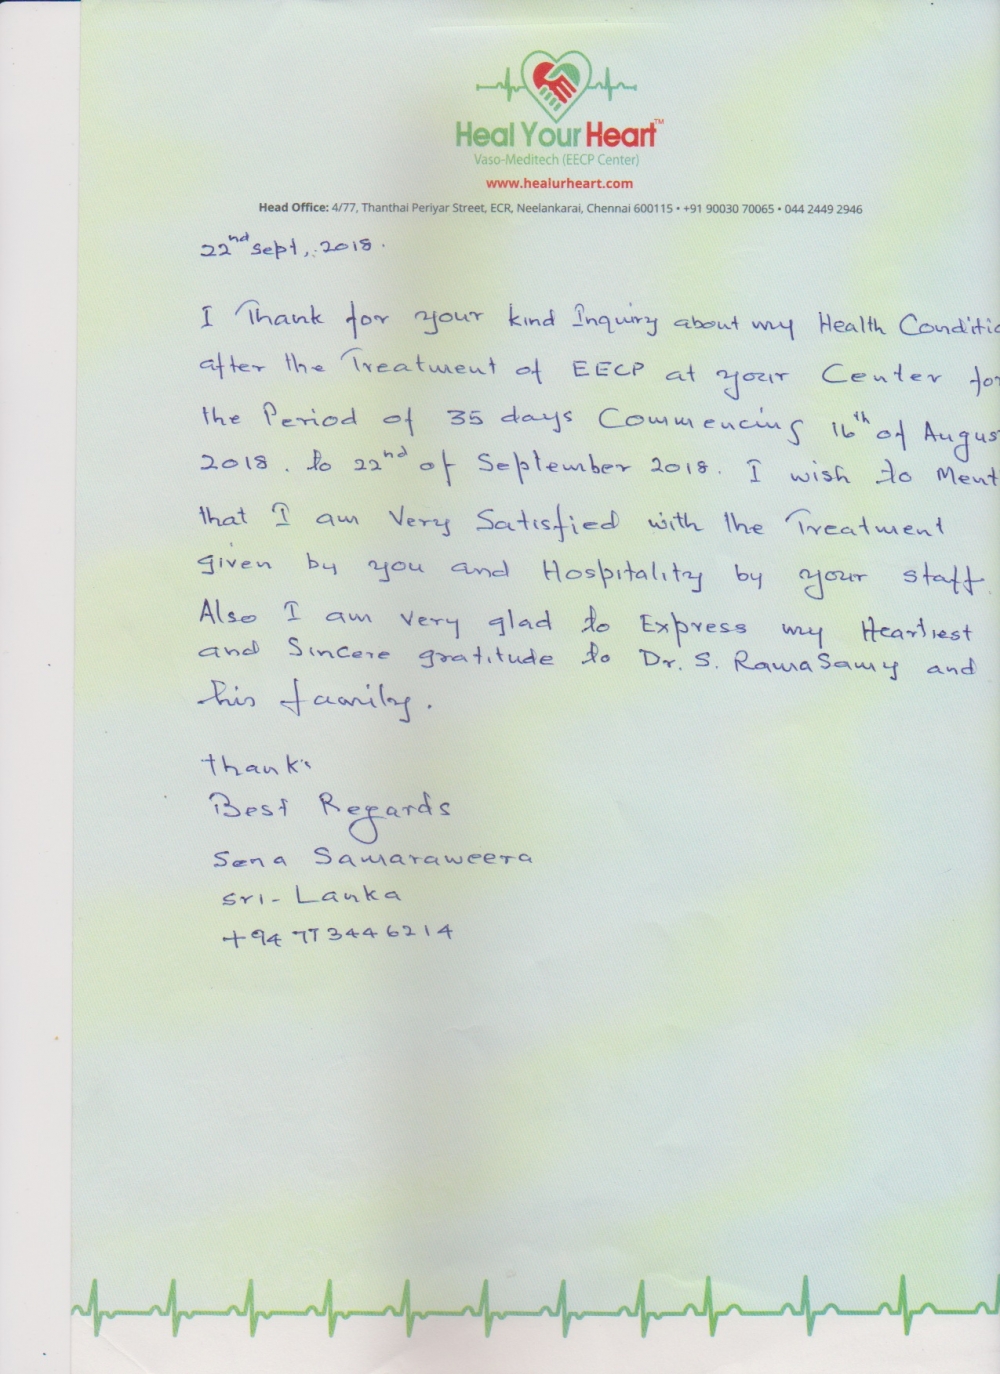 Heal Your Heart™
Vaso-Meditech (EECP Center)
www.healurheart.com
Head Office: 4/77, Thanthai Periyar Street, ECR, Neelankarai, Chennai 600115 • +91 90030 70065 • 044 2449 2946
22nd Sept,. 2018.
I Thank for your kind Inquiry about my Health Conditio
after the Treatment of EECP at your Center for
the Period of 35 days Commencing 16th of Augus
2018. to 22nd of September 2018. I wish to Ment
that I am Very Satisfied with the Treatment
given by you and Hospitality by your staff.
Also I am very glad to Express my Heartiest
and Sincere gratitude to Dr. S. Ramasamy and
his family.
Thanks
Best Regards
Sena Samaraweera
Sri-Lanka
+94 773446214